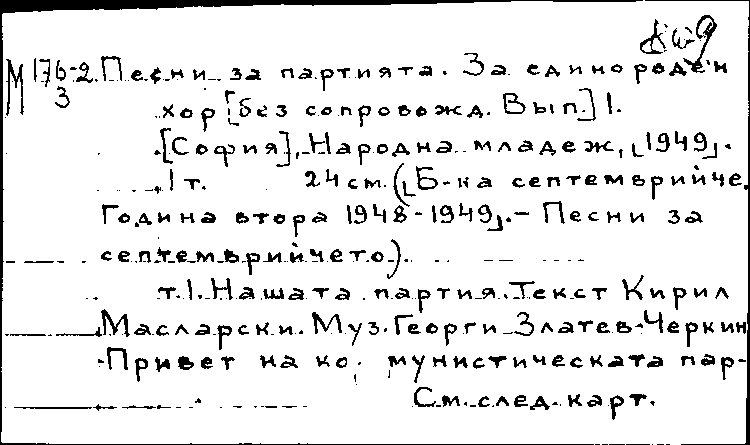 М 176-2 Песни за партията. За еднороден
3 хор [без сопровожд. Вып.] 1.
[София], Народна младеж, [1949].
1 т. 24 см. ([Б-ка септемврийче.
Година втора 1948-1949]. - Песни за
септемврийчето).
т.1. Нашата партия. Текст Кирил
Масларски. Муз. Георги Златев-Черкин
Привет на ко мунистическата пар-
См. след. карт.